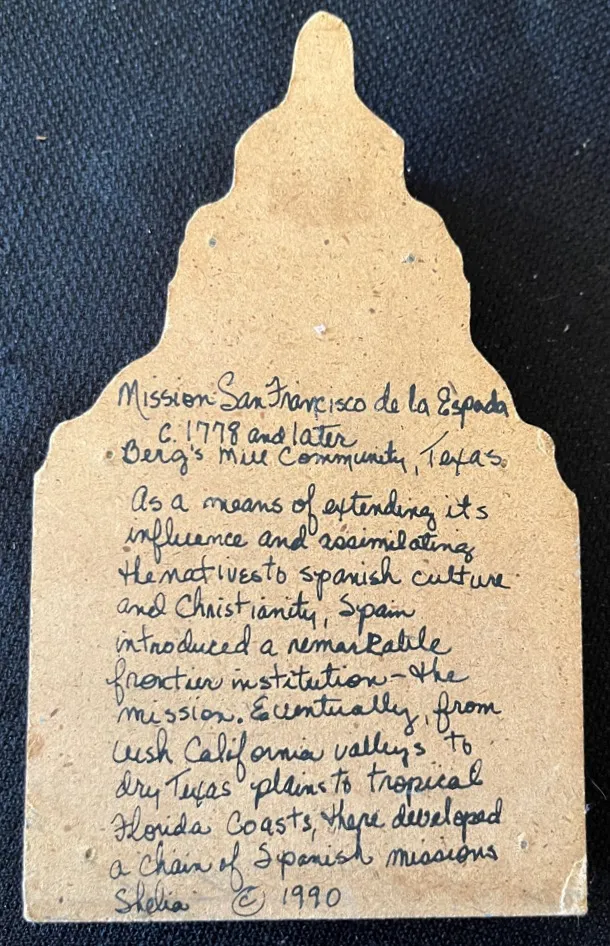 Mission San Francisco de la Espada
C. 1778 and later
Berg's Mill Community, Texas.
As a means of extending its
influence and assimilating
the natives to spanish culture
and Christianity, Spain
introduced a remarkable
frontier institution - the
mission. Eventually, from
lush California valleys to
dry Texas plains to tropical
Florida Coasts, there developed
a chain of Spanish missions
Shelia © 1990